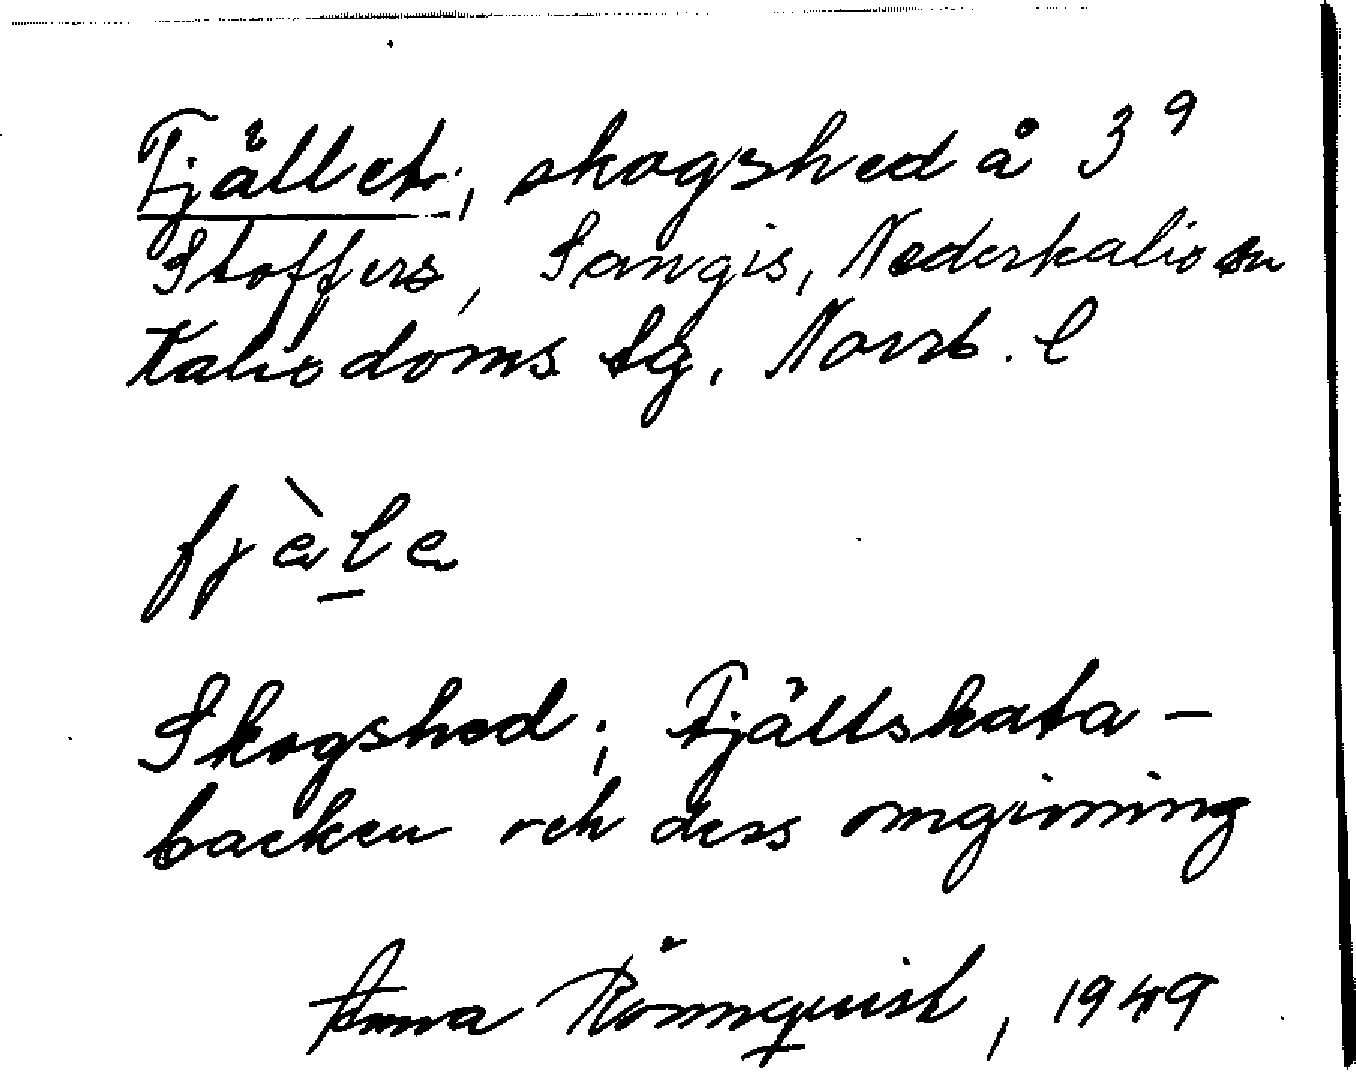 Fjället, skogshed å 3⁹
Stoffers, Sangis, Nederkalix sn
Kalix doms tg, Norrb. l
fjèl̲e
Skogshed; Fjällskata-
backen och dess omgivning
Anna Rönnquist, 1949